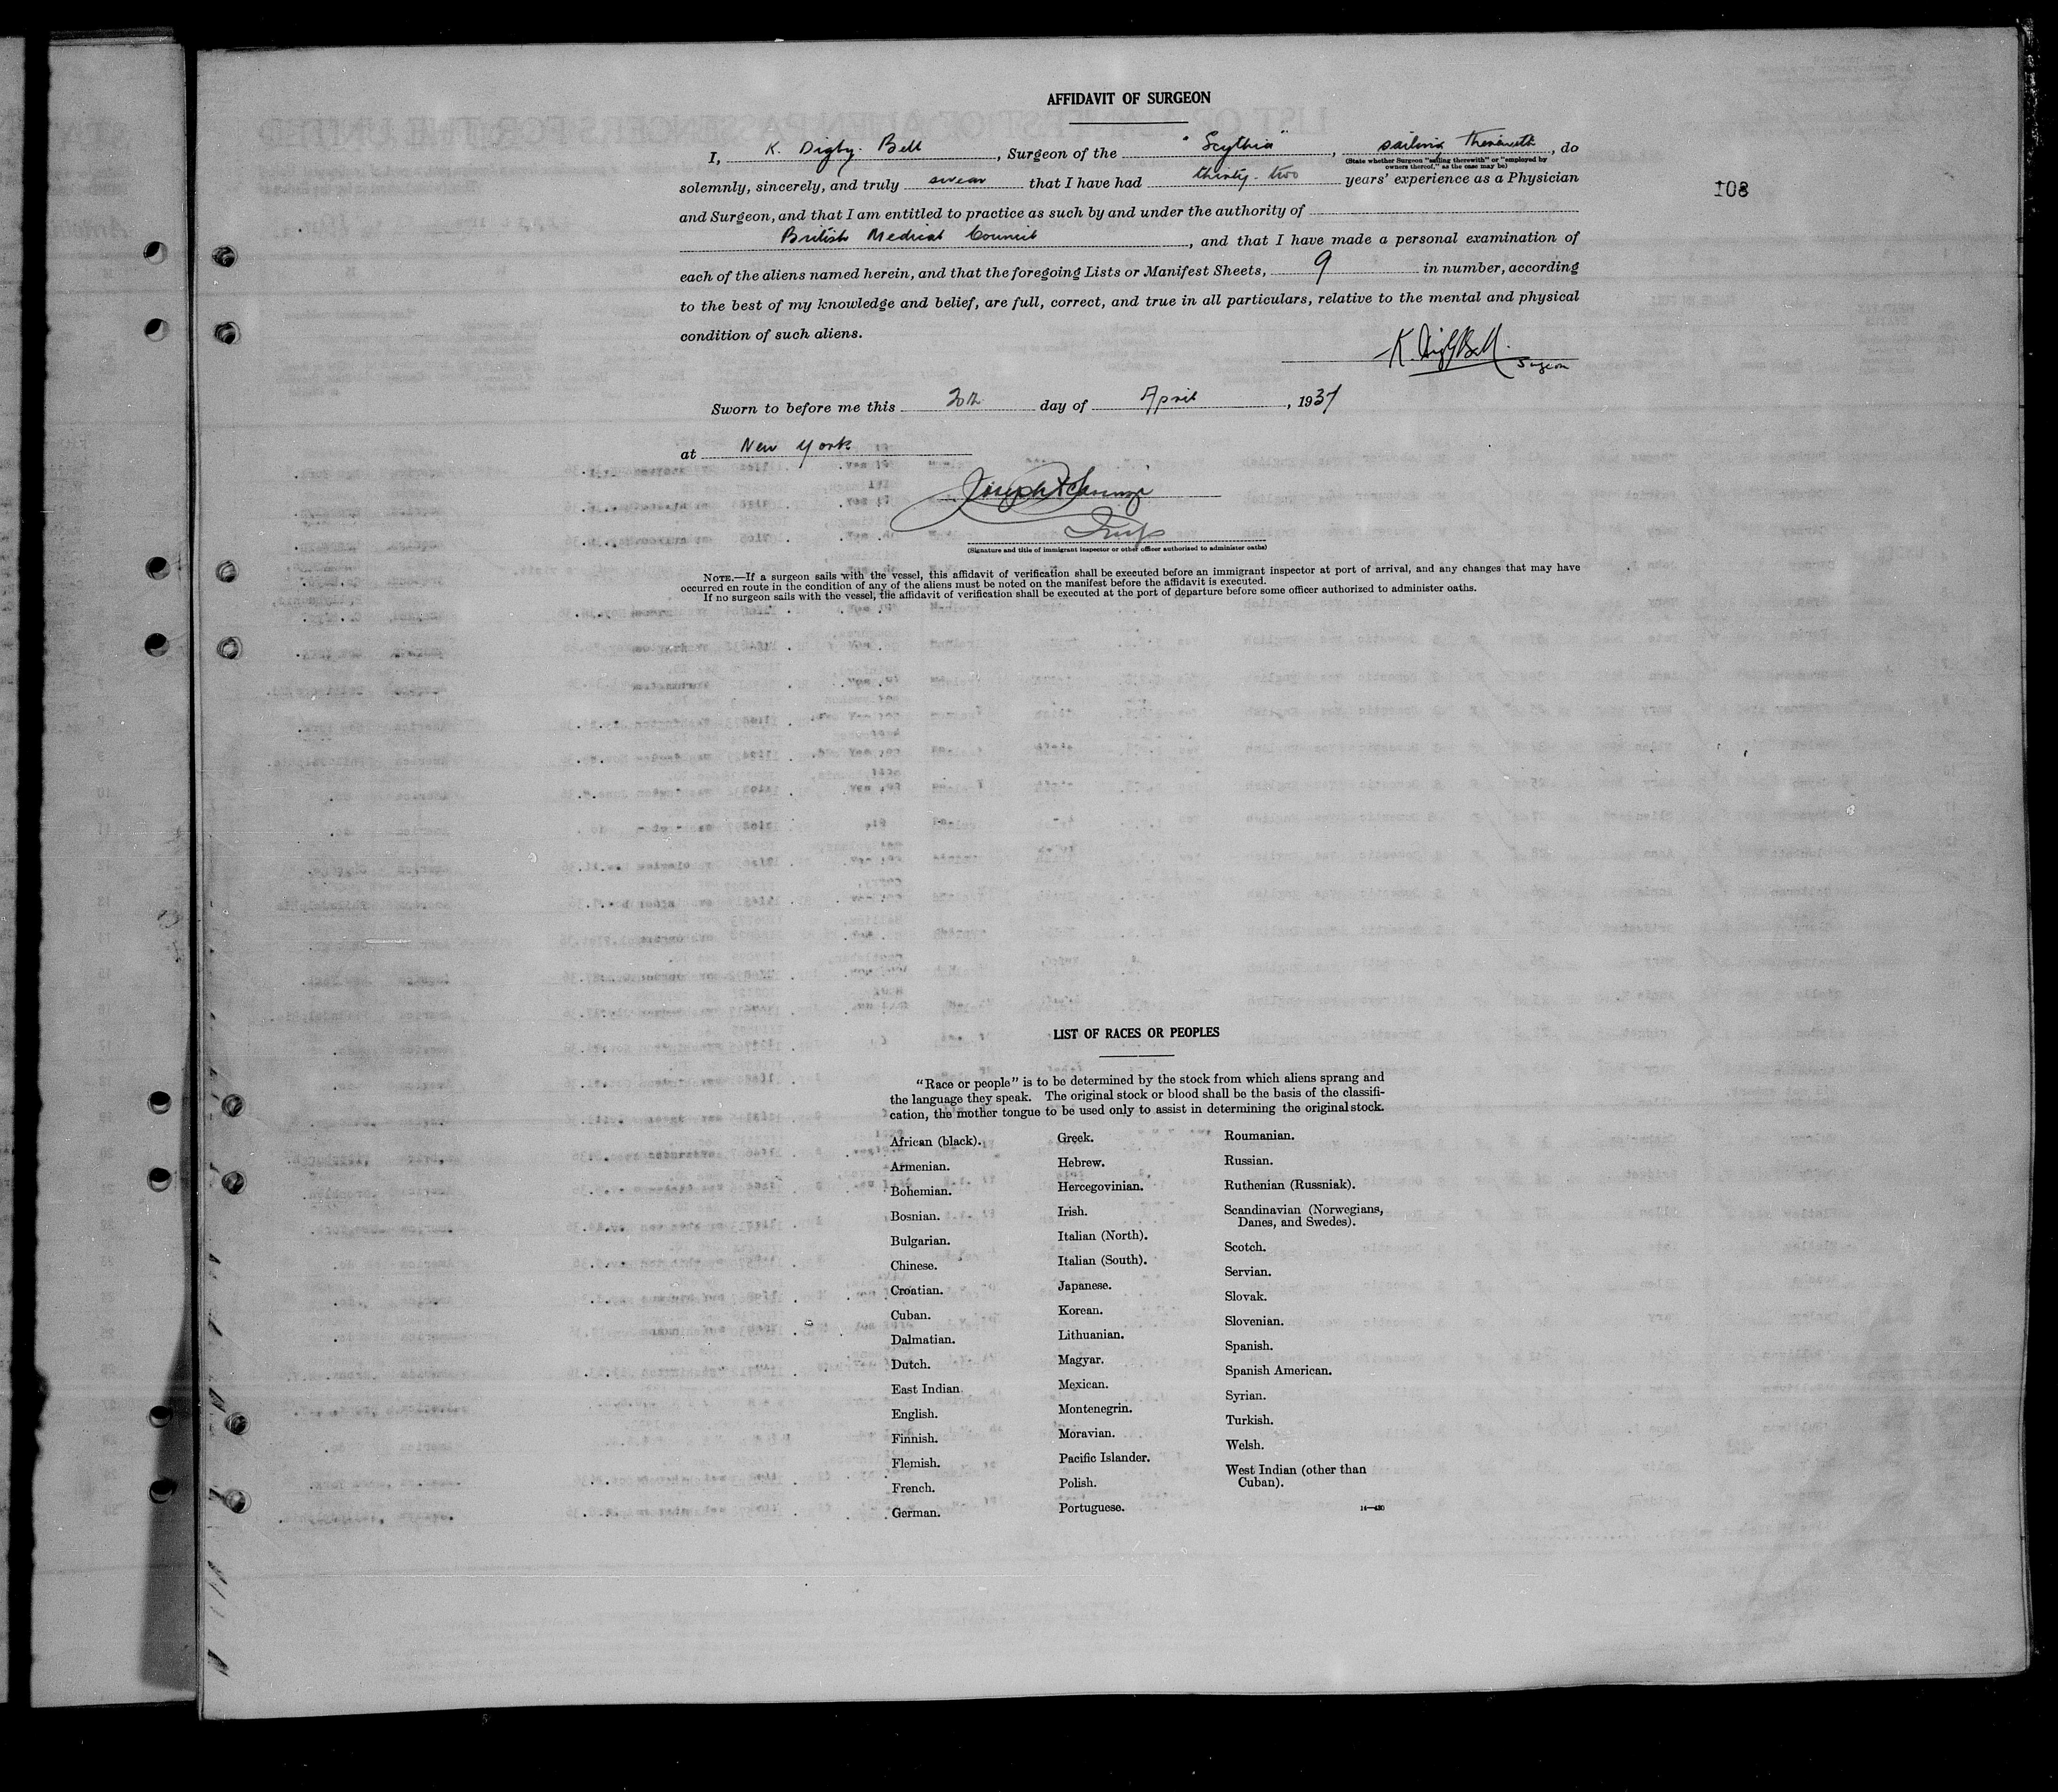 AFFIDAVIT OF SURGEON
I, K. Digby. Bell, Surgeon of the "Scythia", sailing therewith, do
(State whether Surgeon "sailing therewith" or "employed by
owners thereof," as the case may be)
solemnly, sincerely, and truly swear that I have had thirty-two years' experience as a Physician
108
and Surgeon, and that I am entitled to practice as such by and under the authority of
British Medical Council, and that I have made a personal examination of
each of the aliens named herein, and that the foregoing Lists or Manifest Sheets, 9 in number, according
to the best of my knowledge and belief, are full, correct, and true in all particulars, relative to the mental and physical
condition of such aliens.
K. Digby Bell.
Surgeon
Sworn to before me this day of April, 1937
at New York
Joseph
Insp
(Signature and title of immigrant inspector or other officer authorized to administer oaths)
NOTE.—If a surgeon sails with the vessel, this affidavit of verification shall be executed before an immigrant inspector at port of arrival, and any changes that may have
occurred en route in the condition of any of the aliens must be noted on the manifest before the affidavit is executed.
If no surgeon sails with the vessel, the affidavit of verification shall be executed at the port of departure before some officer authorized to administer oaths.
LIST OF RACES OR PEOPLES
"Race or people" is to be determined by the stock from which aliens sprang and
the language they speak. The original stock or blood shall be the basis of the classifi-
cation, the mother tongue to be used only to assist in determining the original stock.
African (black).
Armenian.
Bohemian.
Bosnian.
Bulgarian.
Chinese.
Croatian.
Cuban.
Dalmatian.
Dutch.
East Indian
English.
Finnish.
Flemish.
French.
German.
Greek.
Hebrew.
Hercegovinian.
Irish.
Italian (North).
Italian (South).
Japanese.
Korean.
Lithuanian.
Magyar.
Mexican.
Montenegrin.
Moravian.
Pacific Islander.
Polish.
Portuguese.
Roumanian.
Russian.
Ruthenian (Russniak).
Scandinavian (Norwegians,
Danes, and Swedes).
Scotch.
Servian.
Slovak.
Slovenian.
Spanish.
Spanish American.
Syrian.
Turkish.
Welsh.
West Indian (other than
Cuban).
14—430